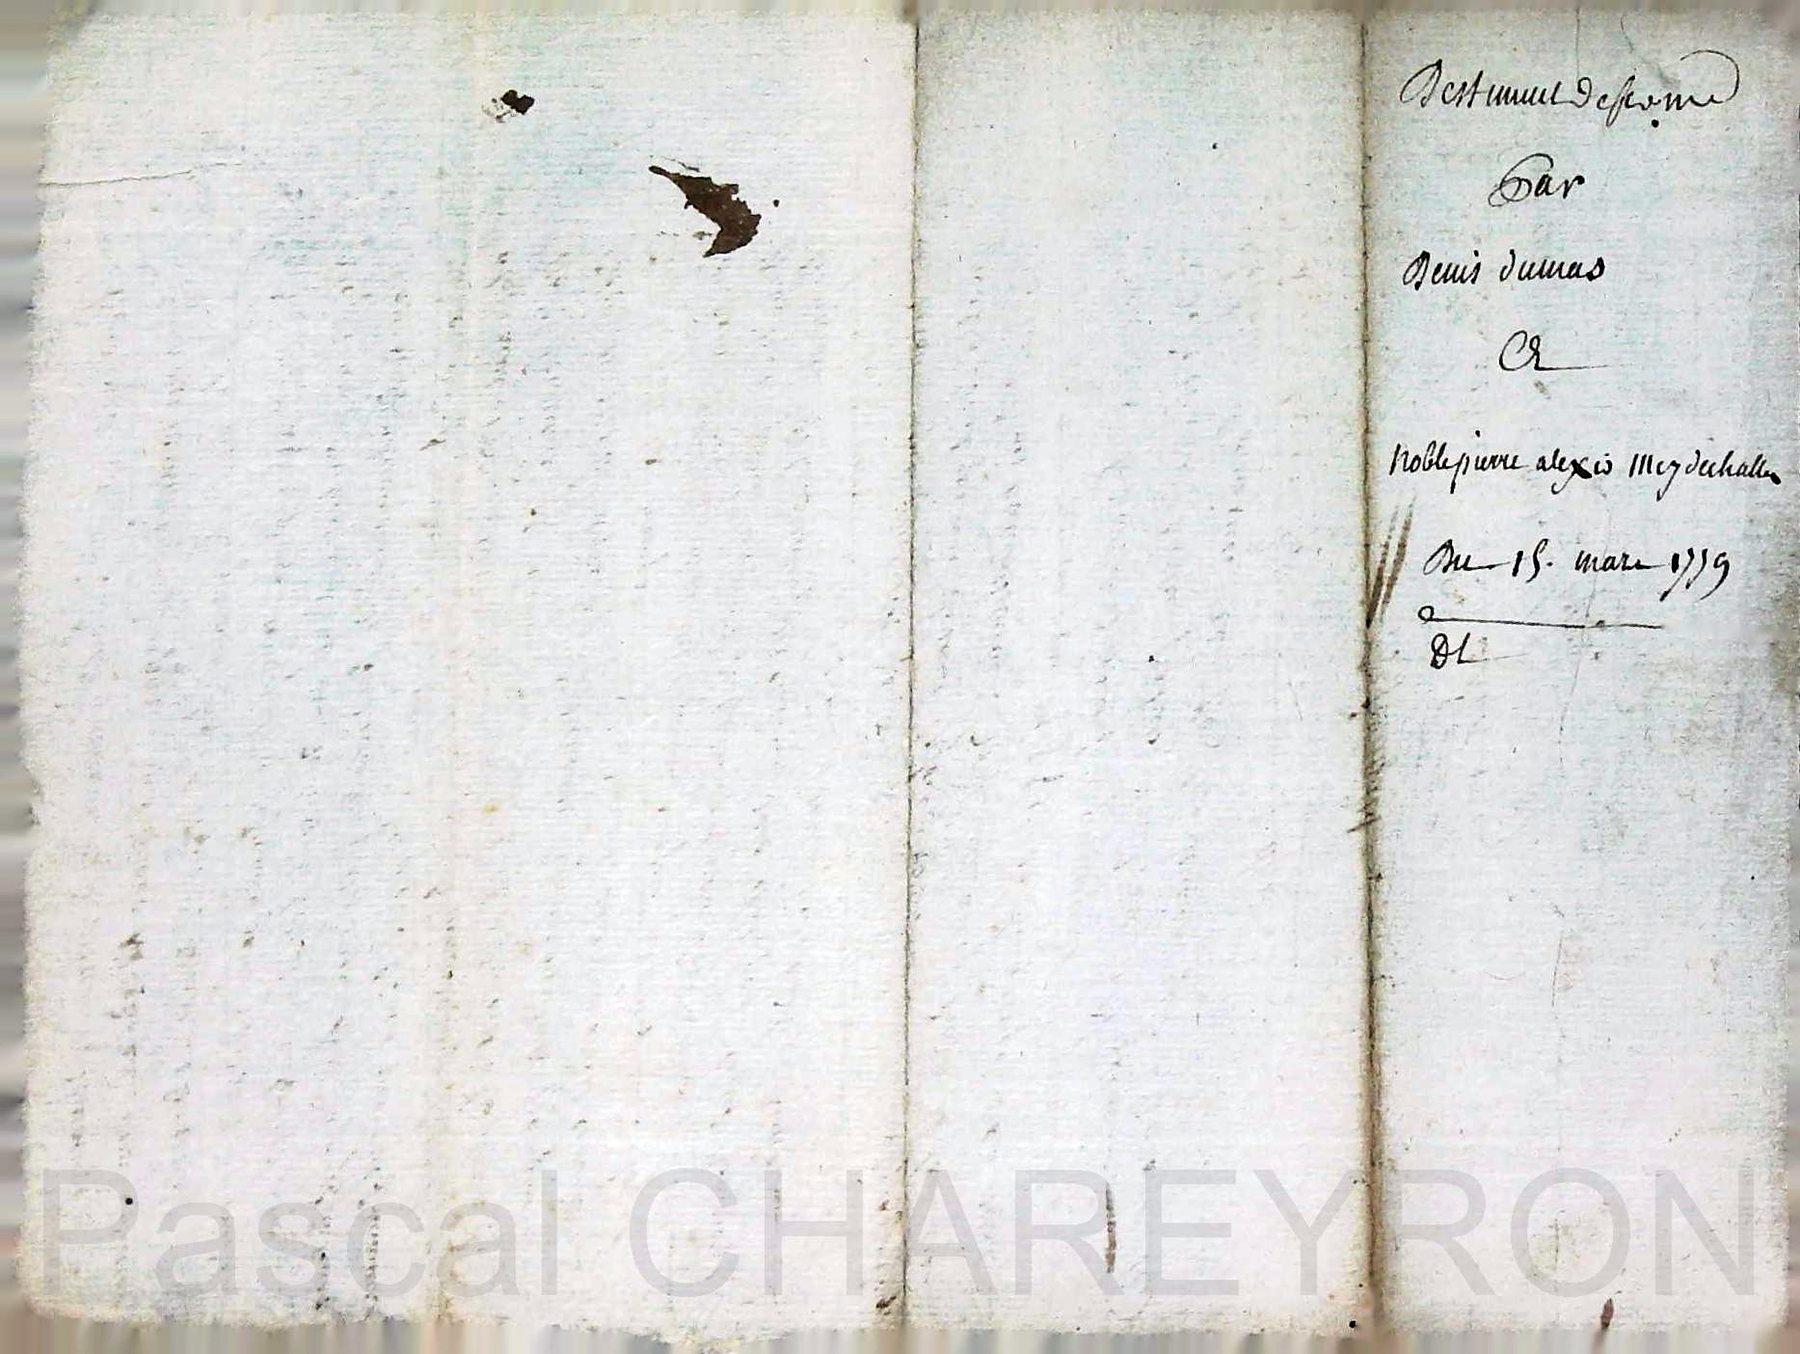 Desistement de ferme
Par
Denis dumas
A
Noble pierre alexis Mey dechalles
Du 15. mars 1759
Dl
Pascal CHAREYRON